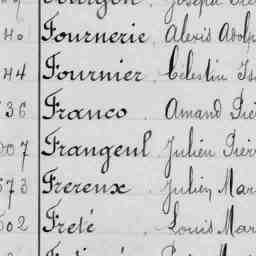 Fournerie Alexis Adolp
44 Fournier Célestin Is
36 Franco Amand Piè
007 Frangeul Julien Pierr
573 Frereux Julien Mar
502 Freté Louis Mar